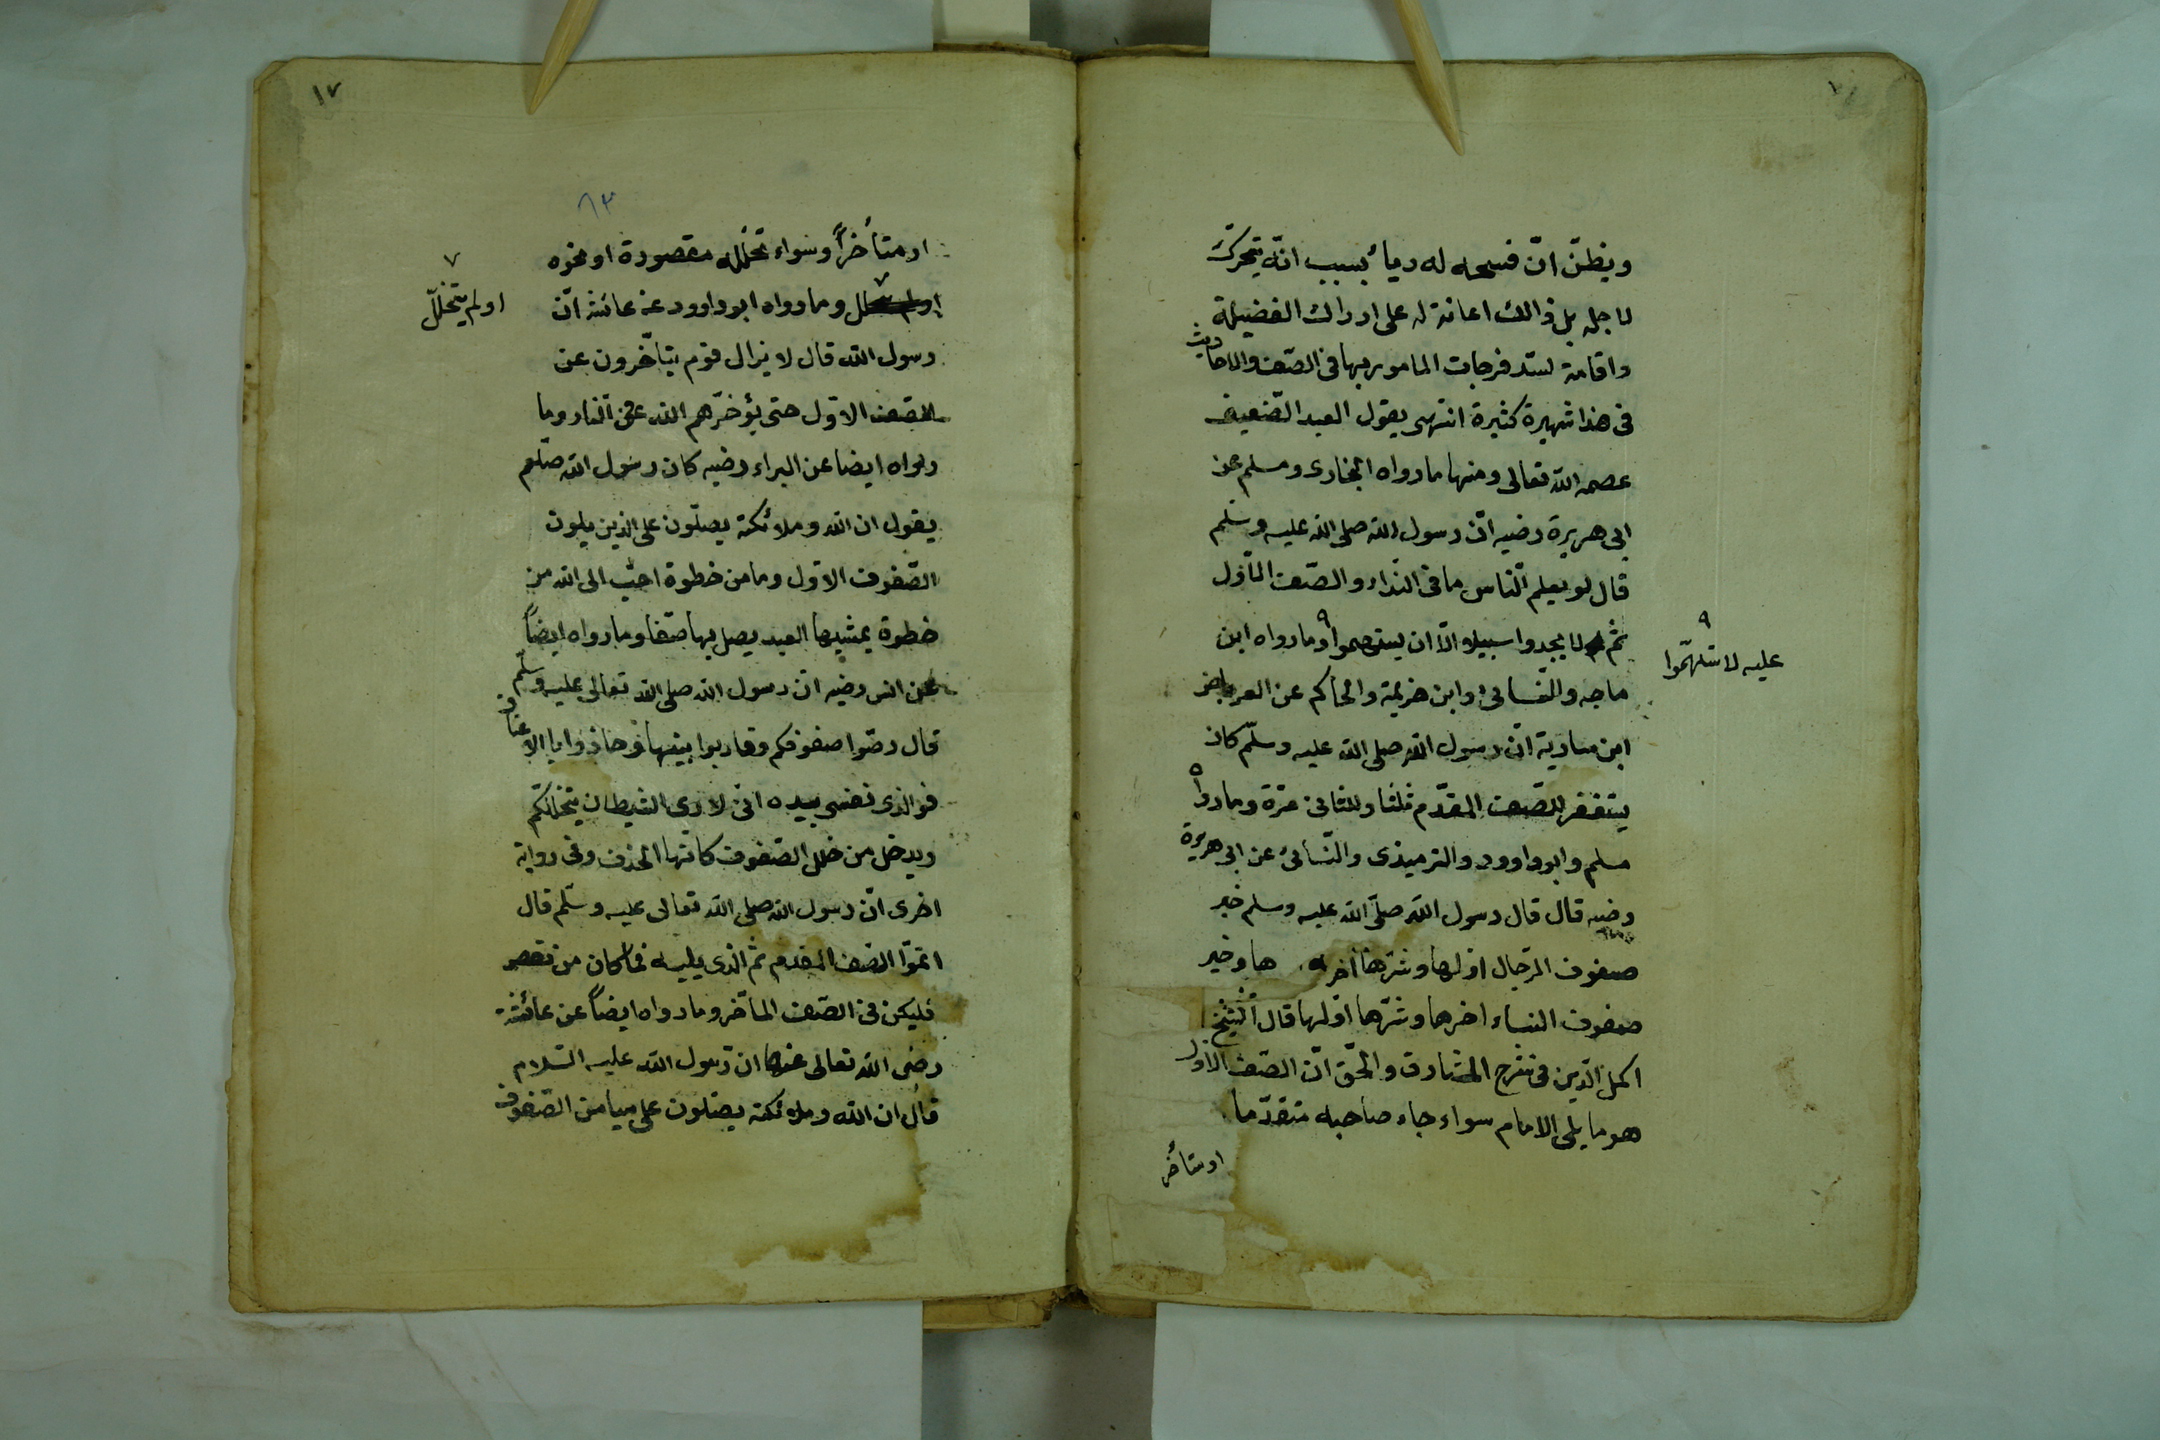 ويظنّ انّ فسحه له رياءُ بسبب انّه يتحرّك
لاجله بل ذالك اعانة له على ادراك الفضيلة
واقامة لسدّ فرجات المامور بها فى الصّف والاحاديث
فى هذا شهيرة كثيرة انتهى يقول العبد الضّعيف
عصمه الله تعالى ومنها ما رواه البخارى ومسلم عن
ابى هريرة رضيه انّ رسول الله صلى الله عليه وسلم
قال لو يعلم النّاس ما فى النّداء والصّف الاوّل
ثم لم لا يجدوا سبيلا الّا ان يستهموا ٩ وما رواه ابن
٩
عليه لاستهمّوا
ماجه والنّسائى وابن خزيمة والحاكم عن العرباض
ابن سارية انّ رسول الله صلى الله عليه وسلّم كان
يستغفر للصّف المقدّم ثلثا وللثانى مرّة وما رواه
مسلم وابو داوود والترميذى والنّسائىُ عن ابى هريرة
رضيه قال قال رسول الله صلّى الله عليه وسلم خير
صفوف الرّجال اوّلها وشرّها اخرها وخير
صفوف النساء اخرها وشرّها اوّلها قال الشّيخ
اكمل الدّين فى شرح المشارق والحقّ انّ الصّف الاوّل
هو ما يلى الامام سواء جاء صاحبه متقدّما
او متأخر
١٧
٨٣
او متأخراً وسواء تخلّله مقصورة او نحوه
٧
او لم يتخلّل
وما رواه ابو داوود عن عائشة انّ
رسول الله قال لا يزال قوم يتأخّرون عن
الصّف الاوّل حتى يؤخّرهم الله عن النّار وما
رواه ايضا عن البراء رضيه كان رسول الله صلّعم
يقول ان الله وملائكته يصلّون على الذين يلون
الصّفوف الاوّل وما من خطوة احبّ الى الله من
خطوة يمشيها العبد يصل بها صفّا وما رواه ايضاً
عن انس رضيه انّ رسول الله صلى الله تعالى عليه وسلّم
قال رصّوا صفوفكم وقاربوا بينها وحاذوا بالاعناق
فوالذى نفسى بيده انّى لارى الشيطان يتخلّلكم
ويدخل من خلل الصّفوف كانّها الحذف وفى رواية
اخرى انّ رسول الله صلى الله تعالى عليه وسلّم قال
اتمّوا الصّف المقدم ثم الذى يليه فما كان من نقص
فليكن فى الصّف المأخّر وما رواه ايضاً عن عائشة
رضى الله تعالى عنها ان رسول الله عليه السّلام
قال ان الله وملائكته يصلون على ميامن الصّفوف